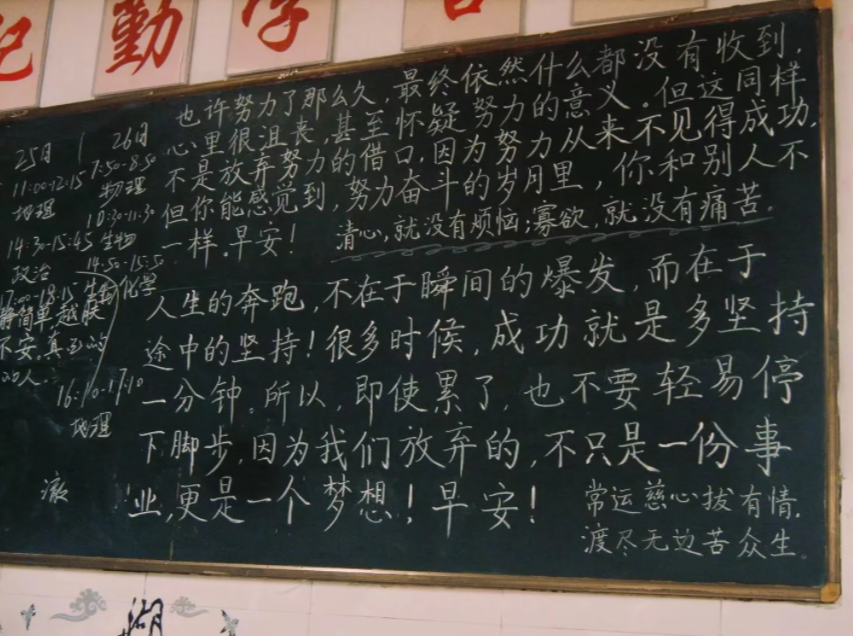 勤
也许努力了那么久,最终依然什么都没有收到,
心里很沮丧,甚至怀疑努力的意义。但这同样
不是放弃努力的借口,因为努力从来不见得成功,
但你能感觉到,努力奋斗的岁月里,你和别人不
一样。早安!
清心,就没有烦恼;寡欲,就没有痛苦。
人生的奔跑,不在于瞬间的爆发,而在于
途中的坚持!很多时候,成功就是多坚持
一分钟。所以,即使累了,也不要轻易停
下脚步,因为我们放弃的,不只是一份事
业,更是一个梦想!早安!
常运慈心拔有情,
渡尽无边苦众生。
25日
11:00-12:15
地理
14:30-15:45
政治
17:00-18:15
26日
7:50-8:50
物理
10:30-11:30
生物
14:50-15:50
化学
16:10-17:10
地理
湖